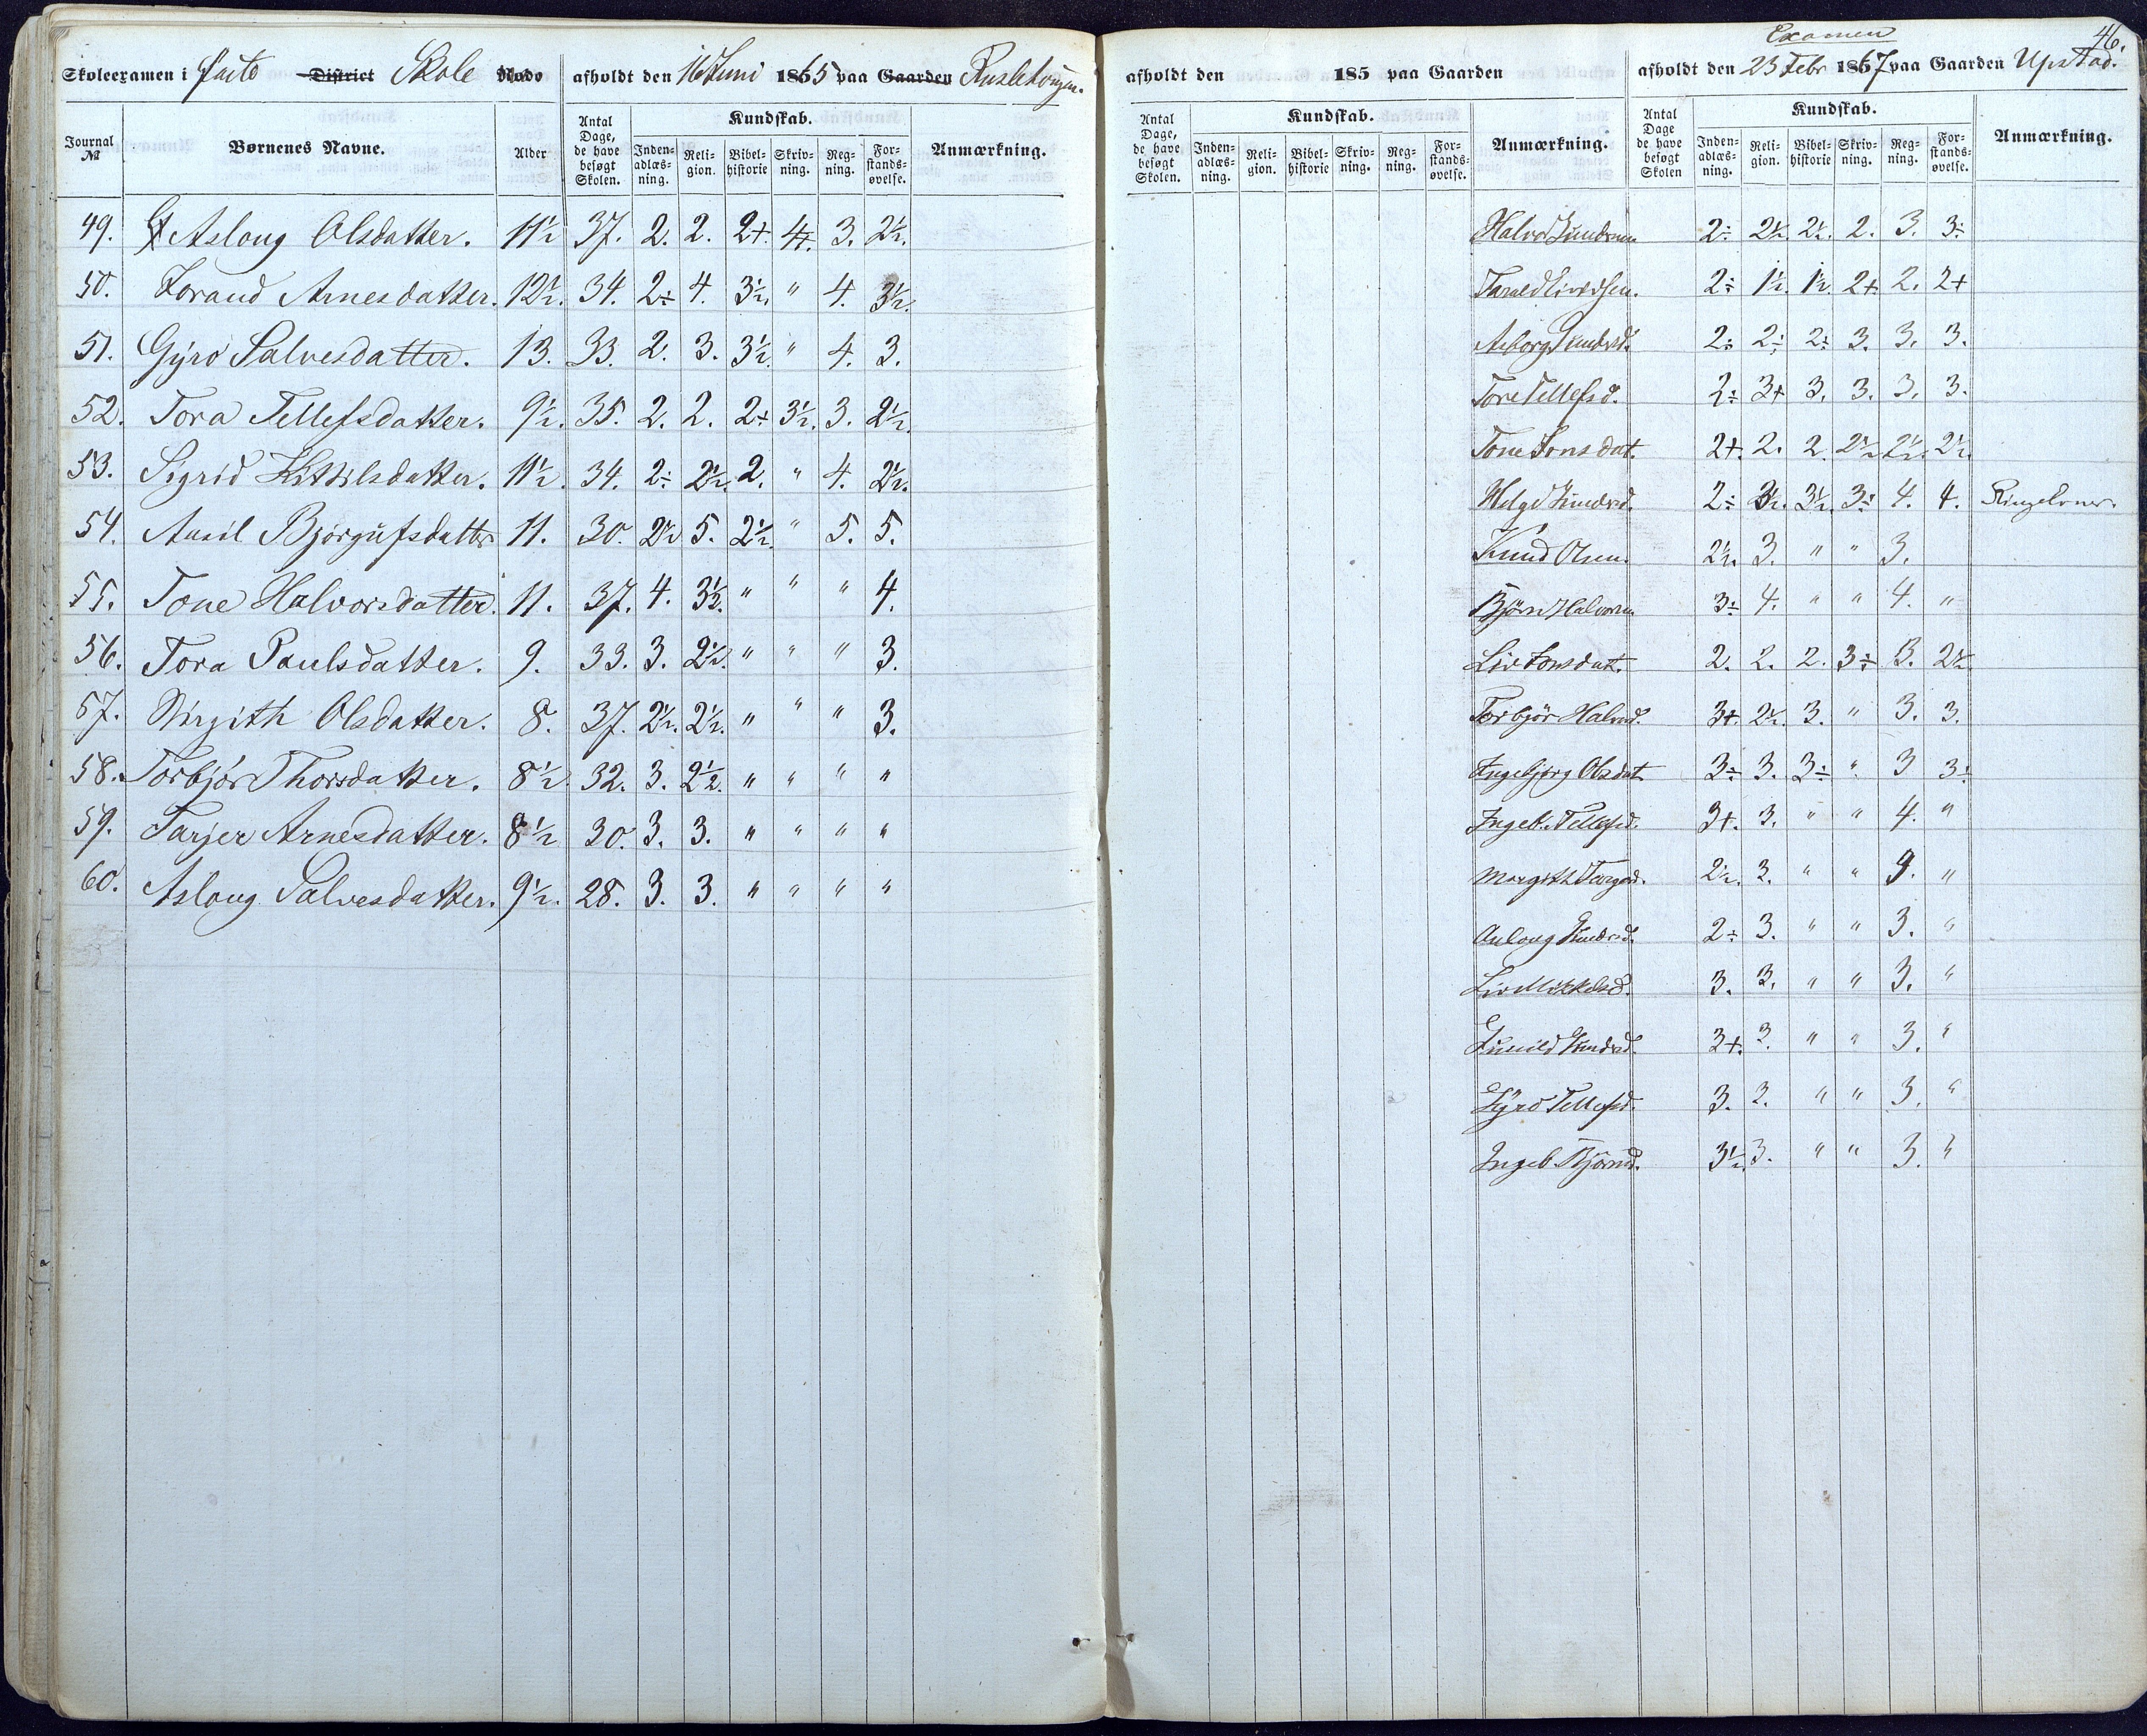 Skoleexamen i faste District Skole Rode afholdt den 16 Juni 1865 paa Gaarden
Journal № Børnenes Navne. Alder Antal Dage, de have besøgt Skolen. Kundskab. Inden-adlæs-ning. Reli-gion. Bibel-historie Skriv-ning. Reg-ning. For-stands-øvelse. Anmærkning.
49. Aslaug Olsdatter. 11½ 37. 2. 2. 2+. 4+. 3. 2½.
50. Torand Arnesdatter. 12½. 34. 2÷ 4. 3½. " 4. 3½.
51. Gÿro Salvesdatter. 13. 33. 2. 3. 3½. " 4. 3.
52. Tora Tellefsdatter. 9½. 35. 2. 2. 2÷ 3½. 3. 2½.
53. Sigrid Kittilsdatter. 11½. 34. 2÷ 2½. 2. " 4. 2½.
54. Aasil Bjørgufsdatter 11. 30. 2½ 5. 2½. " 5. 5.
55. Tone Halvorsdatter. 11. 37. 4. 3½. " " " 4.
56. Tora Paulsdatter. 9. 33. 3. 2½. " " " 3.
57. Birgith Olsdatter. 8. 37. 2½. 2½. " " " 3.
58. Torbjør Thorsdatter. 8½ 32. 3. 2½. " " " "
59. Tarjer Arnesdatter. 8½ 30. 3. 3. " " " "
60. Aslaug Salvesdatter. 9½. 28. 3. 3. " " " "
46.
Examen
afholdt den 185 paa Gaarden afholdt den 23 Febr 1867 paa Gaarden Upstad.
Antal Dage, de have besøgt Skolen. Kundskab. Inden-adlæs-ning. Reli-gion. Bibel-historie Skriv-ning. Reg-ning. For-stands-øvelse. Anmærkning. Antal Dage de have besøgt Skolen Kundskab. Inden-adlæs-ning. Reli-gion. Bibel-historie Skriv-ning. Reg-ning. For-stands-øvelse. Anmærkning.
Halvor Gundersen 2÷ 2½. 2½. 2. 3. 3÷
Tarald 2÷ 1½. 1½. 2+ 2. 2+
Asborg 2÷ 2÷ 2÷ 3. 3. 3.
Tore Tellefsd. 2÷ 3+ 3. 3. 3. 3.
Tone Jonsdat. 2+. 2. 2. 2½ 2½. 2½.
Helge 2÷ 3½. 3½. 3÷ 4. 4.
Knud Olsen. 2½. 3. " " 3.
Bjørn Halvorsen 3÷ 4. " " 4. "
Liv Jonsdat. 2. 2. 2. 3÷ 3. 2½
Torbjør Halvsd. 3+. 2½. 3. " 3. 3.
Ingebjørg Olsdat 3÷ 3. 3÷ " 3 3÷
Ingeb. Tellefsd. 3+. 3. " " 4. "
Margith Targesd. 2½. 3. " " 4. "
Aslaug 2÷ 3. " " 3. "
Liv Mikkelsd. 3. 3. " " 3. "
Gunild 3+. 3. " " 3. "
Gyro Tellefsd. 3. 3. " " 3. "
Ingeb. Bjørnsd. 3½. 3. " " 3. "